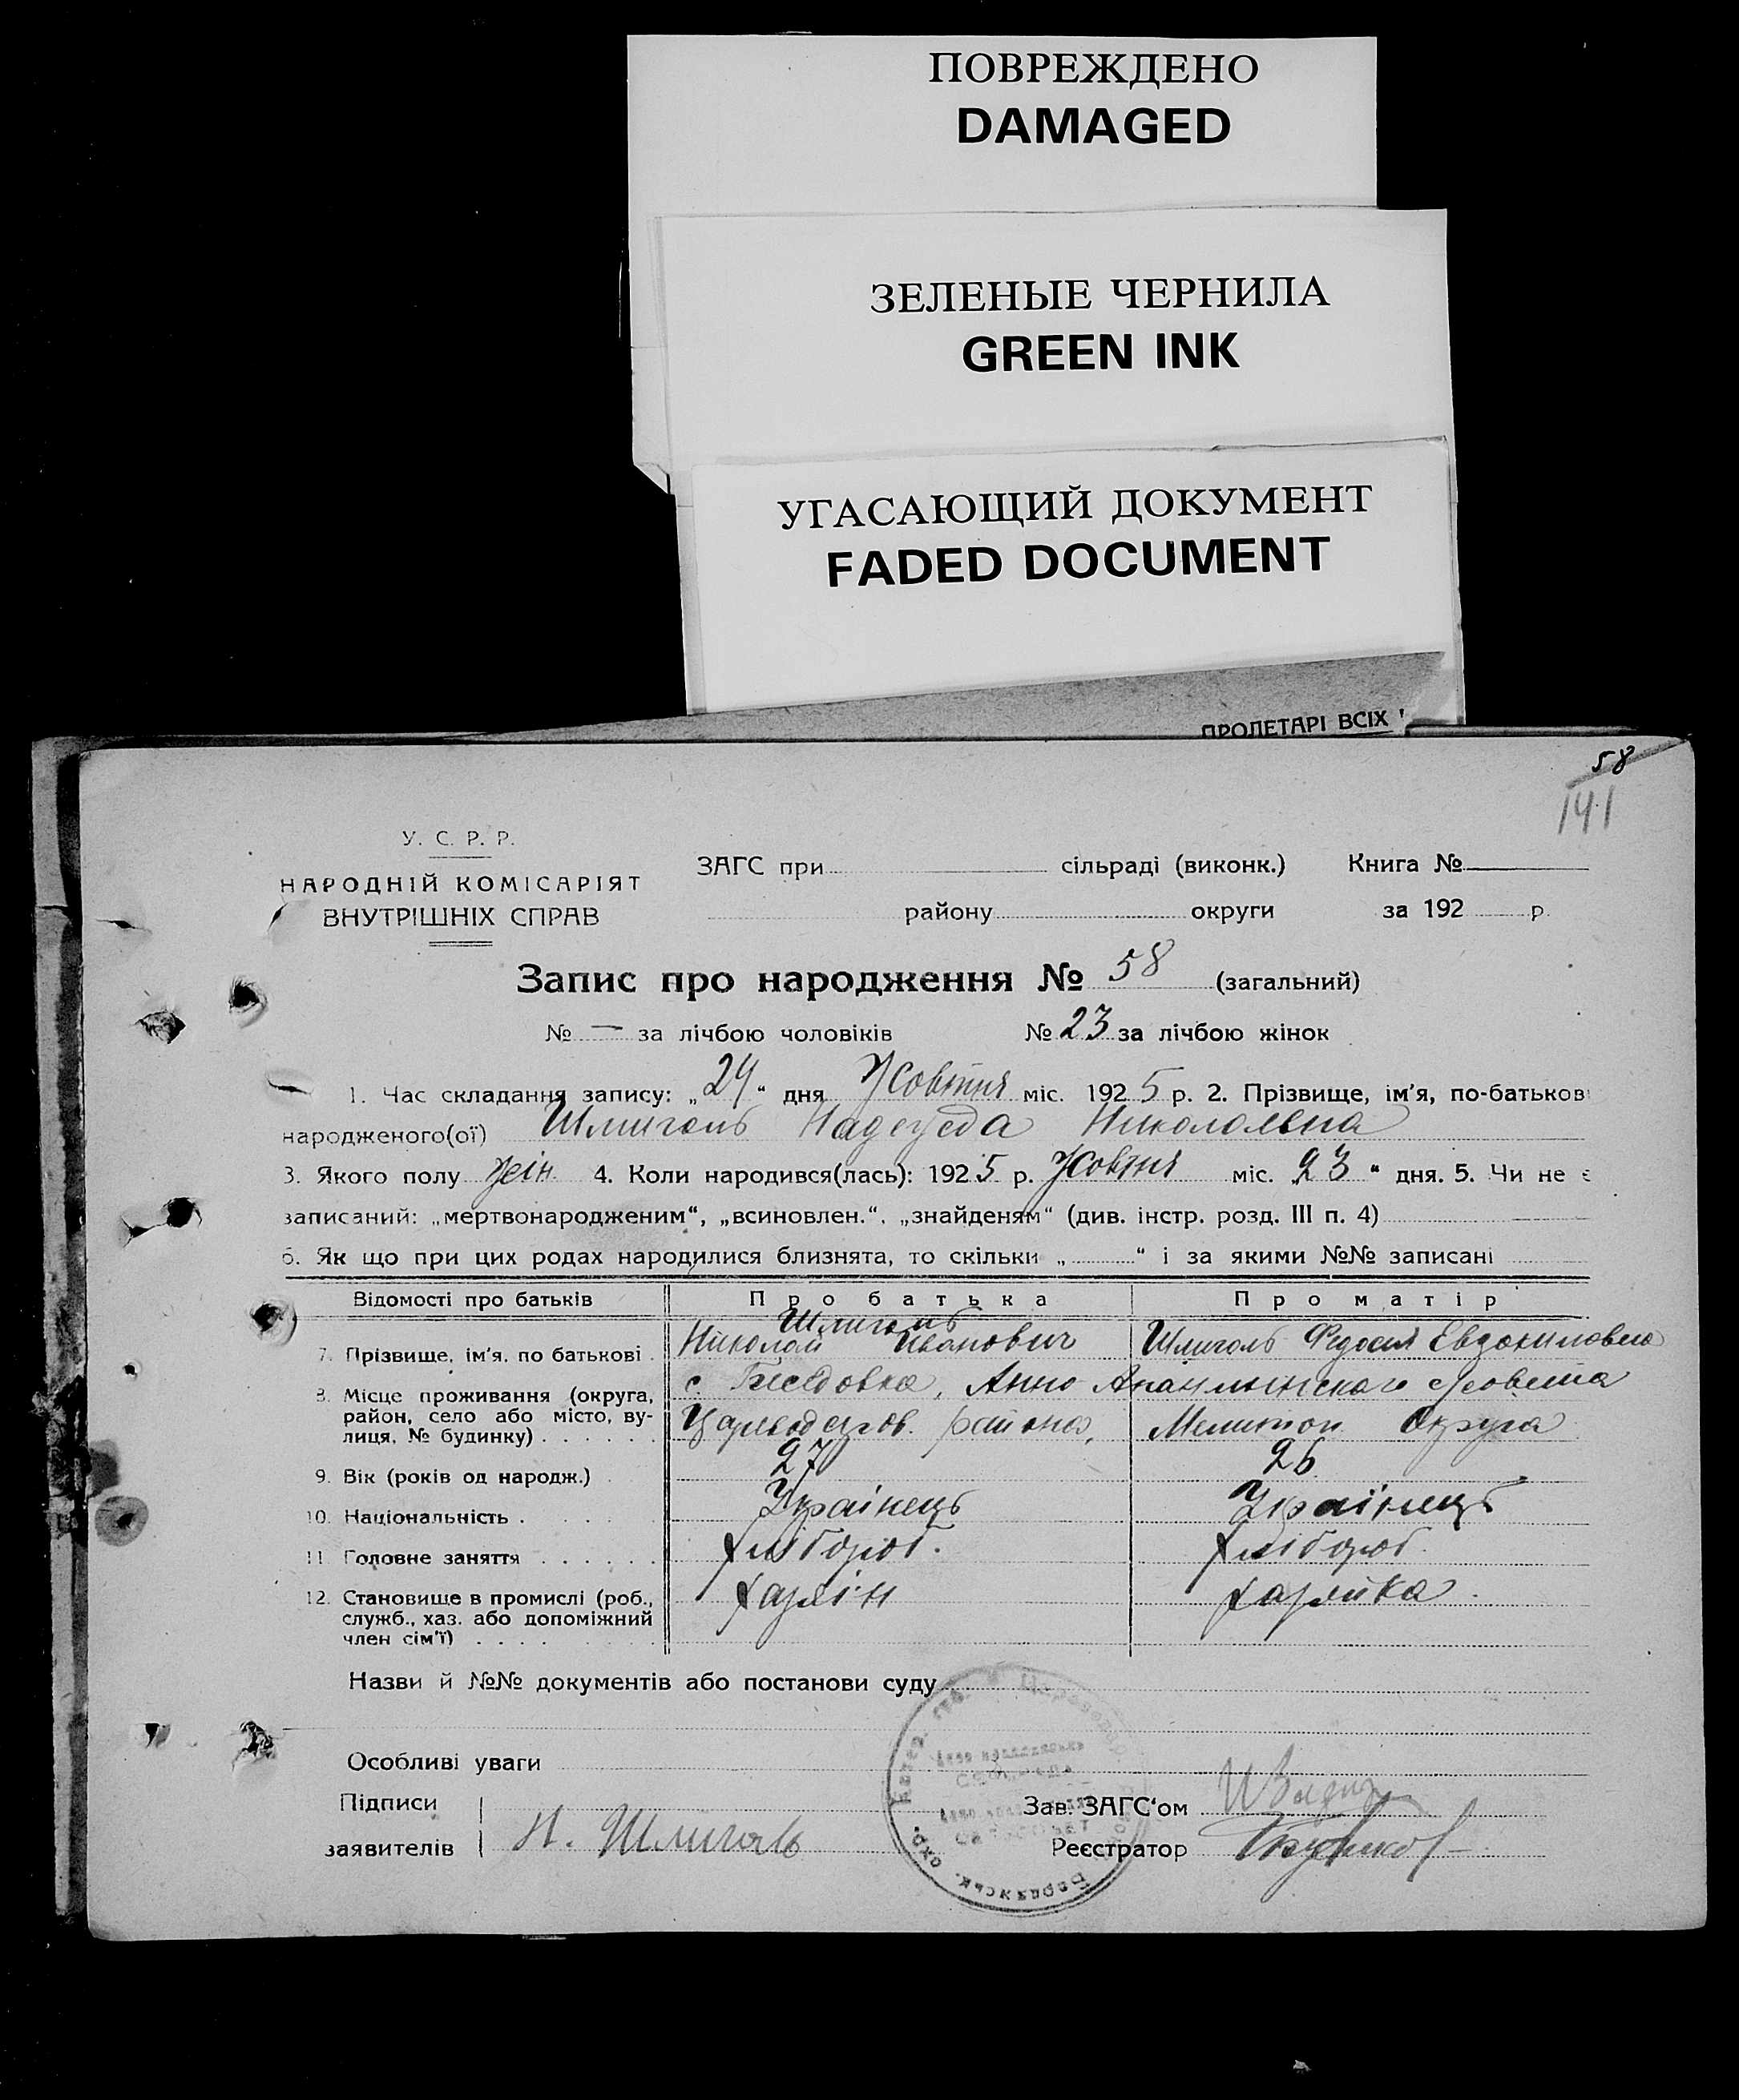 ПОВРЕЖДЕНО
DAMAGED
ЗЕЛЕНЫЕ ЧЕРНИЛА
GREEN INK
УГАСАЮЩИЙ ДОКУМЕНТ
FADED DOCUMENT
ПРОЛЕТАРІ ВСІХ
58
141
У. С. Р. Р.
НАРОДНІЙ КОМІСАРІЯТ
ВНУТРІШНІХ СПРАВ
ЗАГС при сільраді (виконк.) Книга №
району округи за 192 р.
Запис про народження № 58 (загальний)
№ — за лічбою чоловіків № 23 за лічбою жінок
1. Час складання запису: „24“ дня Жовтня міс. 1925 р. 2. Прізвище, ім'я, по-батькові
народженого(ої) Шлиголь Надежда Николаевна
3. Якого полу жін. 4. Коли народився(лась): 1925 р. Жовтня міс. 23“ дня. 5. Чи не є
записаний: „мертвонародженим“, „всиновлен.“, „знайденям“ (див. інстр. розд. III п. 4)
6. Як що при цих родах народилися близнята, то скільки „ “ і за якими №№ записані
Відомості про батьків Про батька Про матір
7. Прізвище, ім'я, по батькові Шлиголь Николай Иванович Шлиголь Федосия Евдокимовна
8. Місце проживання (округа, район, село або місто, вулиця, № будинку) с.
района, Мелитоп Округа
9. Вік (років од народж.) 27 26
10. Національність Українець Українець
11. Головне заняття хлібороб. хлібороб.
12. Становище в промислі (роб.,
служб., хаз. або допоміжний
член сім'ї)
Назви й №№ документів або постанови суду
Особливі уваги
Підписи
заявителів Н. Шлиголь
Зав. ЗАГС'ом
Реєстратор